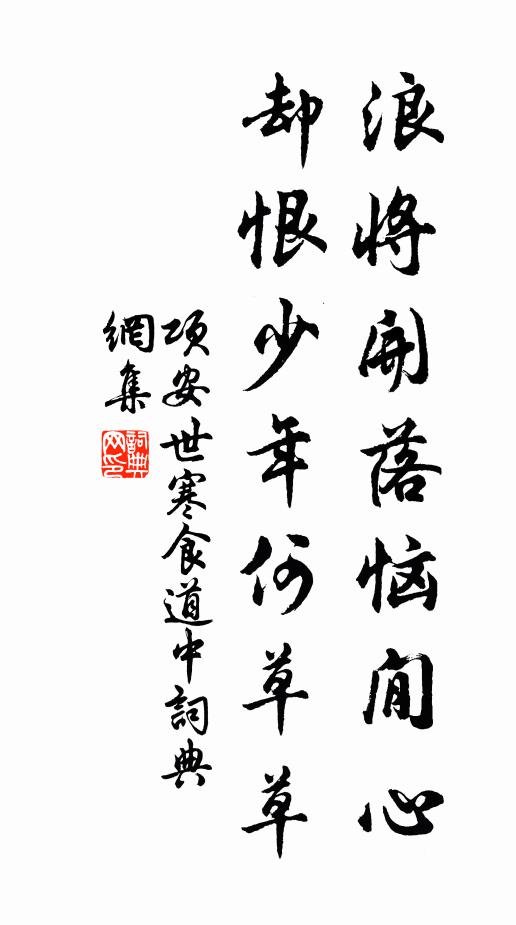 浪將開落惱閒心
却恨少年何草草
項安世寒食道中詞典
網集
詞典
网印